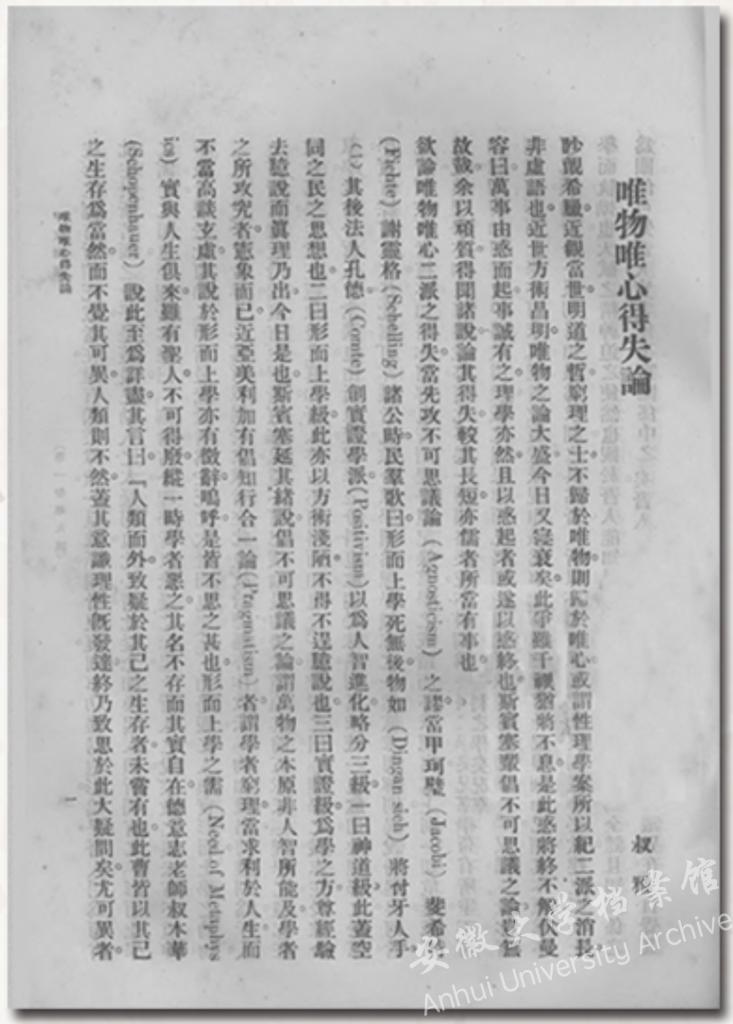 唯物唯心得失論
叔雅
眇覿希臘近觀當世明道之哲窮理之士不歸於唯物則歸於唯心或謂性理學案所以紀二派之消長
非虛語也近世方術昌明唯物之論大盛今日又寖衰矣此爭雖千禩猶將不息是此惑將終不解伏曼
容曰萬事由惑而起事誠有之理學亦然且以惑起者或遂以惑終也斯賓塞輩倡不可思議之論豈無
故哉余以頑質得聞諸說論其得失較其長短亦儒者所當有事也
欲論唯物唯心二派之得失當先攻不可思議論(Agnosticism)之謬當甲珂璧(Jacobi)斐希特
(Fichte)謝靈格(Schelling)諸公時民羣歌曰形而上學死無後物如(Dingan sich)將付牙人手
(1)其後法人孔德(Comte)創實證學派(Positivism)以爲人智進化略分三級一曰神道級此蓋空
同之民之思想也二曰形而上學級此亦以方術淺陋不得不逞臆說也三曰實證級爲學之方尊經驗
去臆說而眞理乃出今日是也斯賓塞延其緒說倡不可思議之論謂萬物之本原非人智所能及學者
之所攻究者憲象而已近亞美利加有倡知行合一論(Pragmatism)者謂學者窮理當求利於人生而
不當高談玄虛其說於形而上學亦有微辭嗚呼是皆不思之甚也形而上學之需(Need of Metaphys
ics)實與人生俱來雖有聖人不可得廢縱一時學者惡之其名不存而其實自在德意志老師叔本華
(Schopenhauer)說此至爲詳盡其言曰『人類而外致疑於其己之生存者未嘗有也此曹皆以其己
之生存爲當然而不覺其可異人類則不然蓋其意識理性旣發達終乃致思於此大疑問矣尤可異者
唯物唯心得失論
一
安徽大学档案馆
Anhui University Archive